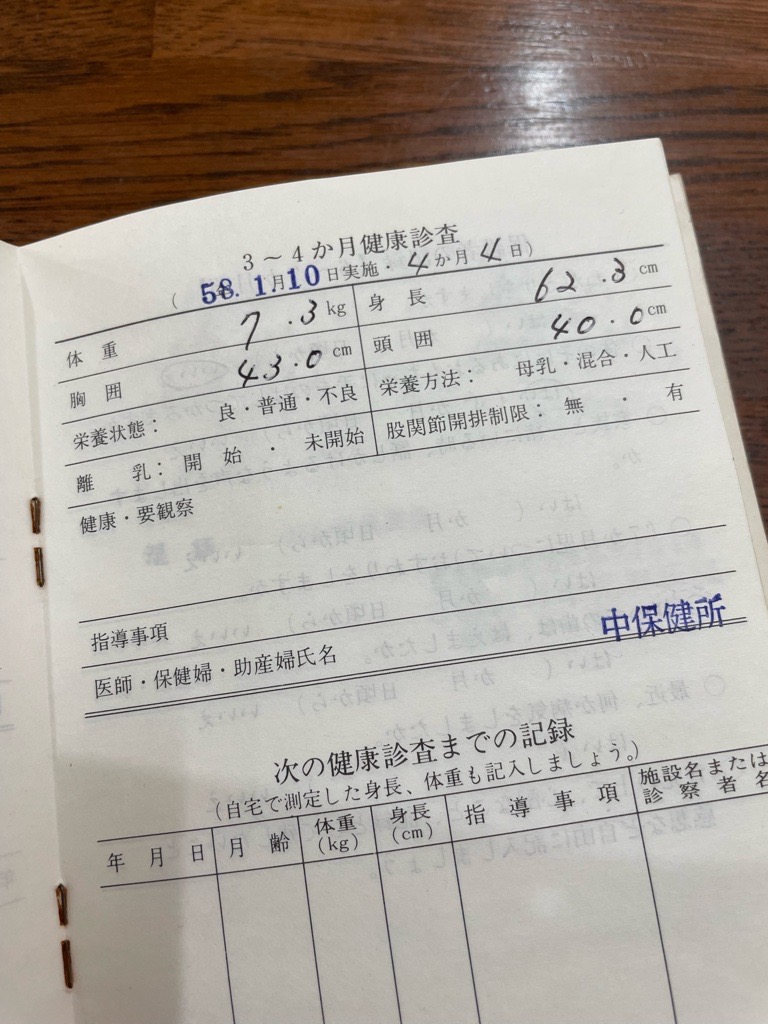 3～4か月健康診査
( 58. 1月10日実施・4か月4日)
体重 7.3kg 身長 62.3cm
胸囲 43.0cm 頭囲 40.0cm
栄養状態： 良・普通・不良 栄養方法： 母乳・混合・人工
離乳：開始・未開始 股関節開排制限：無・有
健康・要観察
指導事項
医師・保健婦・助産婦氏名 中保健所
次の健康診査までの記録
(自宅で測定した身長、体重も記入しましょう。)
年月日 月齢 体重(kg) 身長(cm) 指導事項 施設名または診察者名